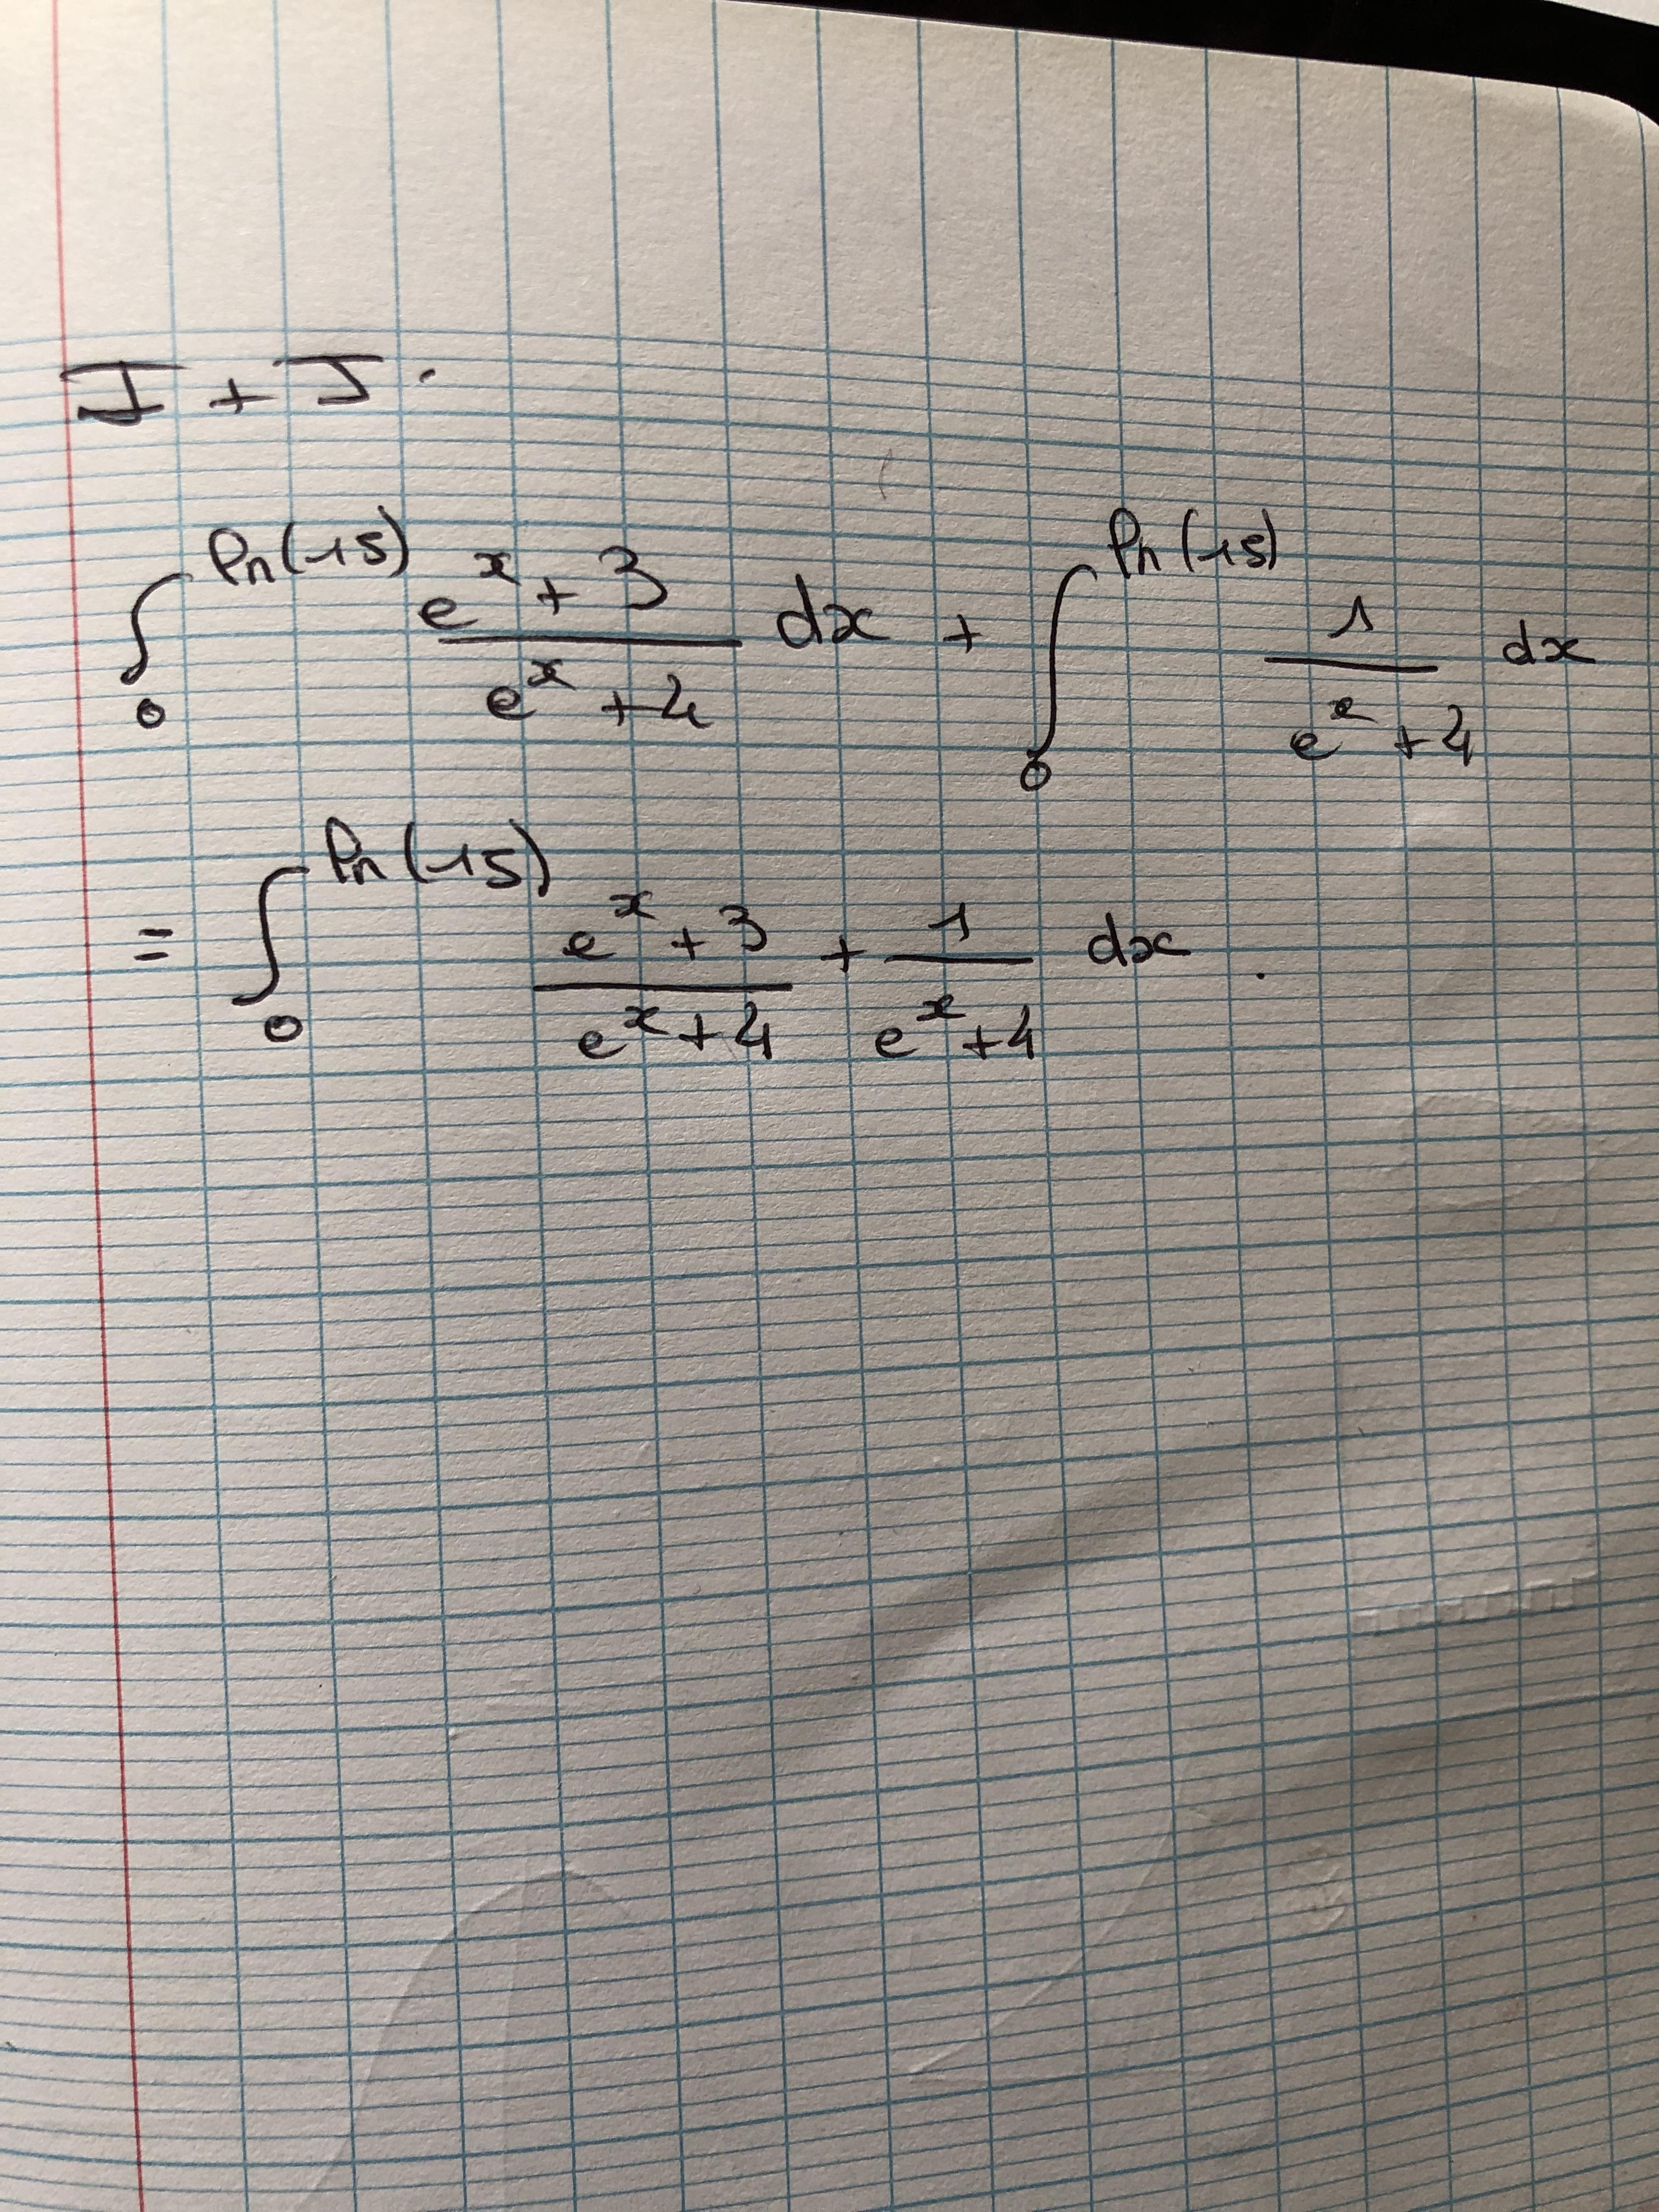 I + J.
∫₀^ln(15) (e^x + 3)/(e^x + 4) dx + ∫₀^ln(15) 1/(e^x + 4) dx
= ∫₀^ln(15) (e^x + 3)/(e^x + 4) + 1/(e^x + 4) dx .